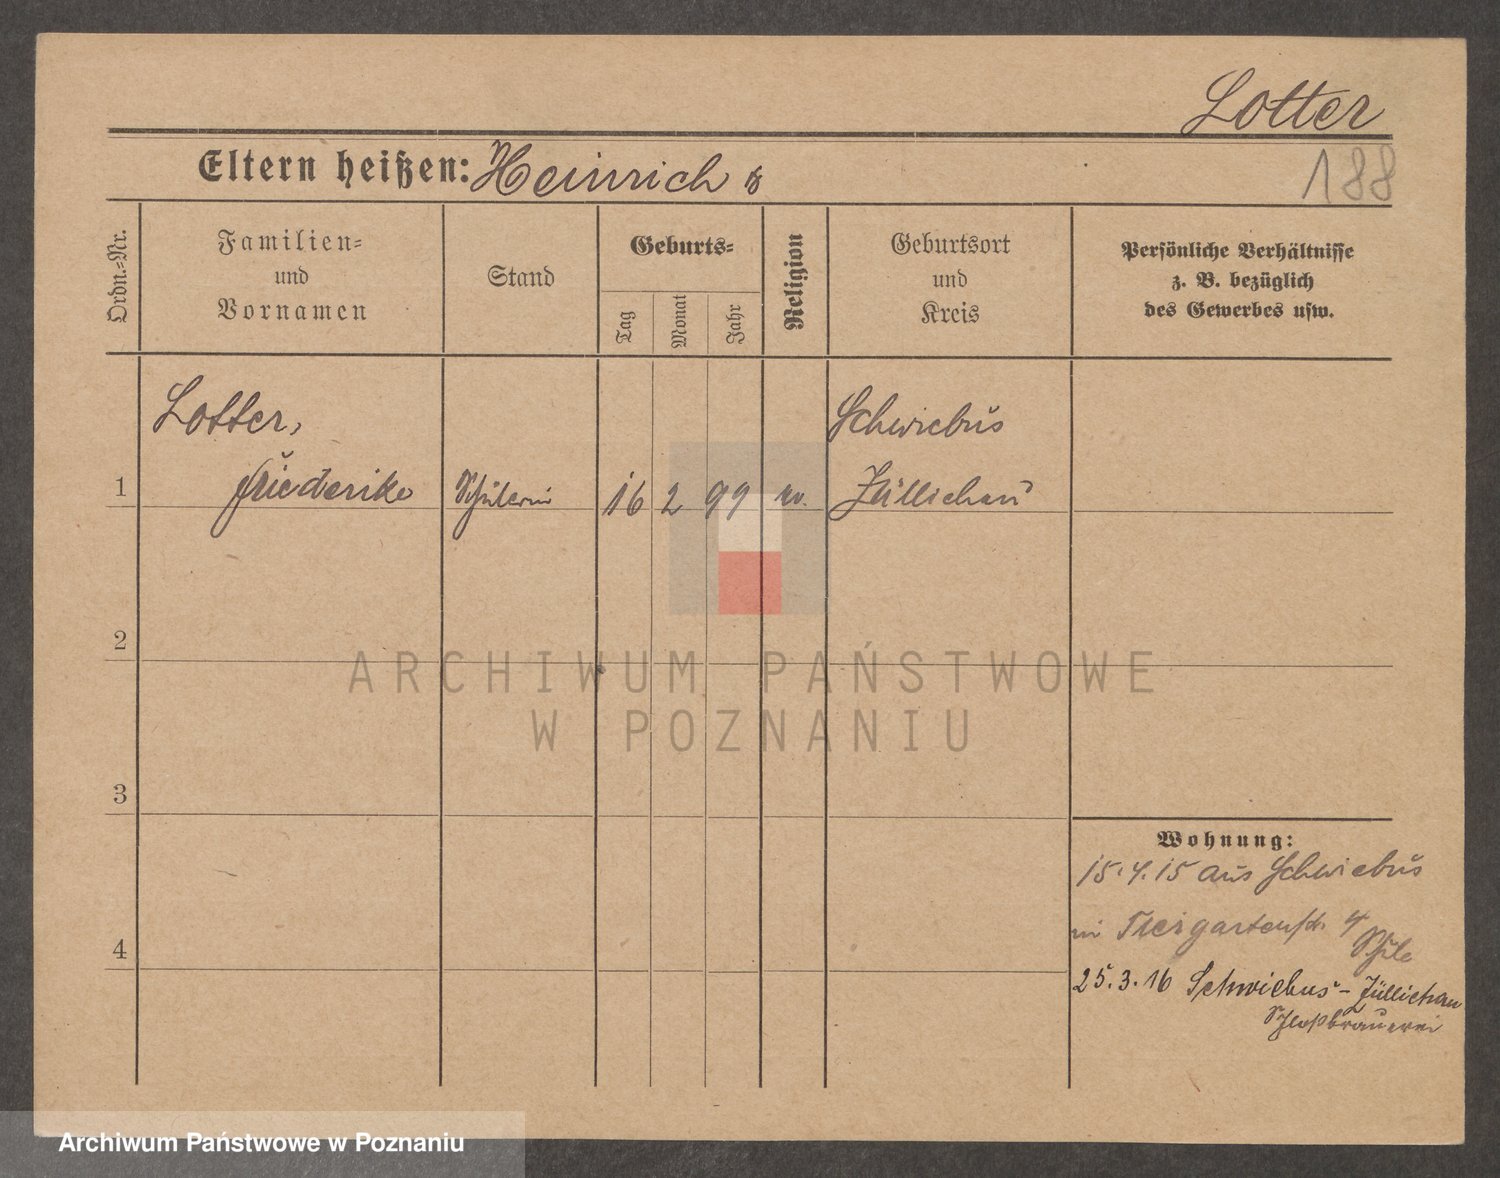 Lotter
Eltern heißen: Heinrich
188
Ordn.-Nr.
Familien-
und
Vornamen
Stand
Geburts-
Tag
Monat
Jahr
Religion
Geburtsort
und
Kreis
Persönliche Verhältnisse
z. B. bezüglich
des Gewerbes usw.
Lotter,
Schwiebus
1 Friederike Schülerin 16 2 99 ev. Züllichau
2
ARCHIWUM PAŃSTWOWE
W POZNANIU
3
Wohnung:
15.4.15 aus Schwiebus
in Tiergartenstr. 4
Schule
4
25.3.16 Schwiebus - Züllichau
Schloßbrauerei
Archiwum Państwowe w Poznaniu